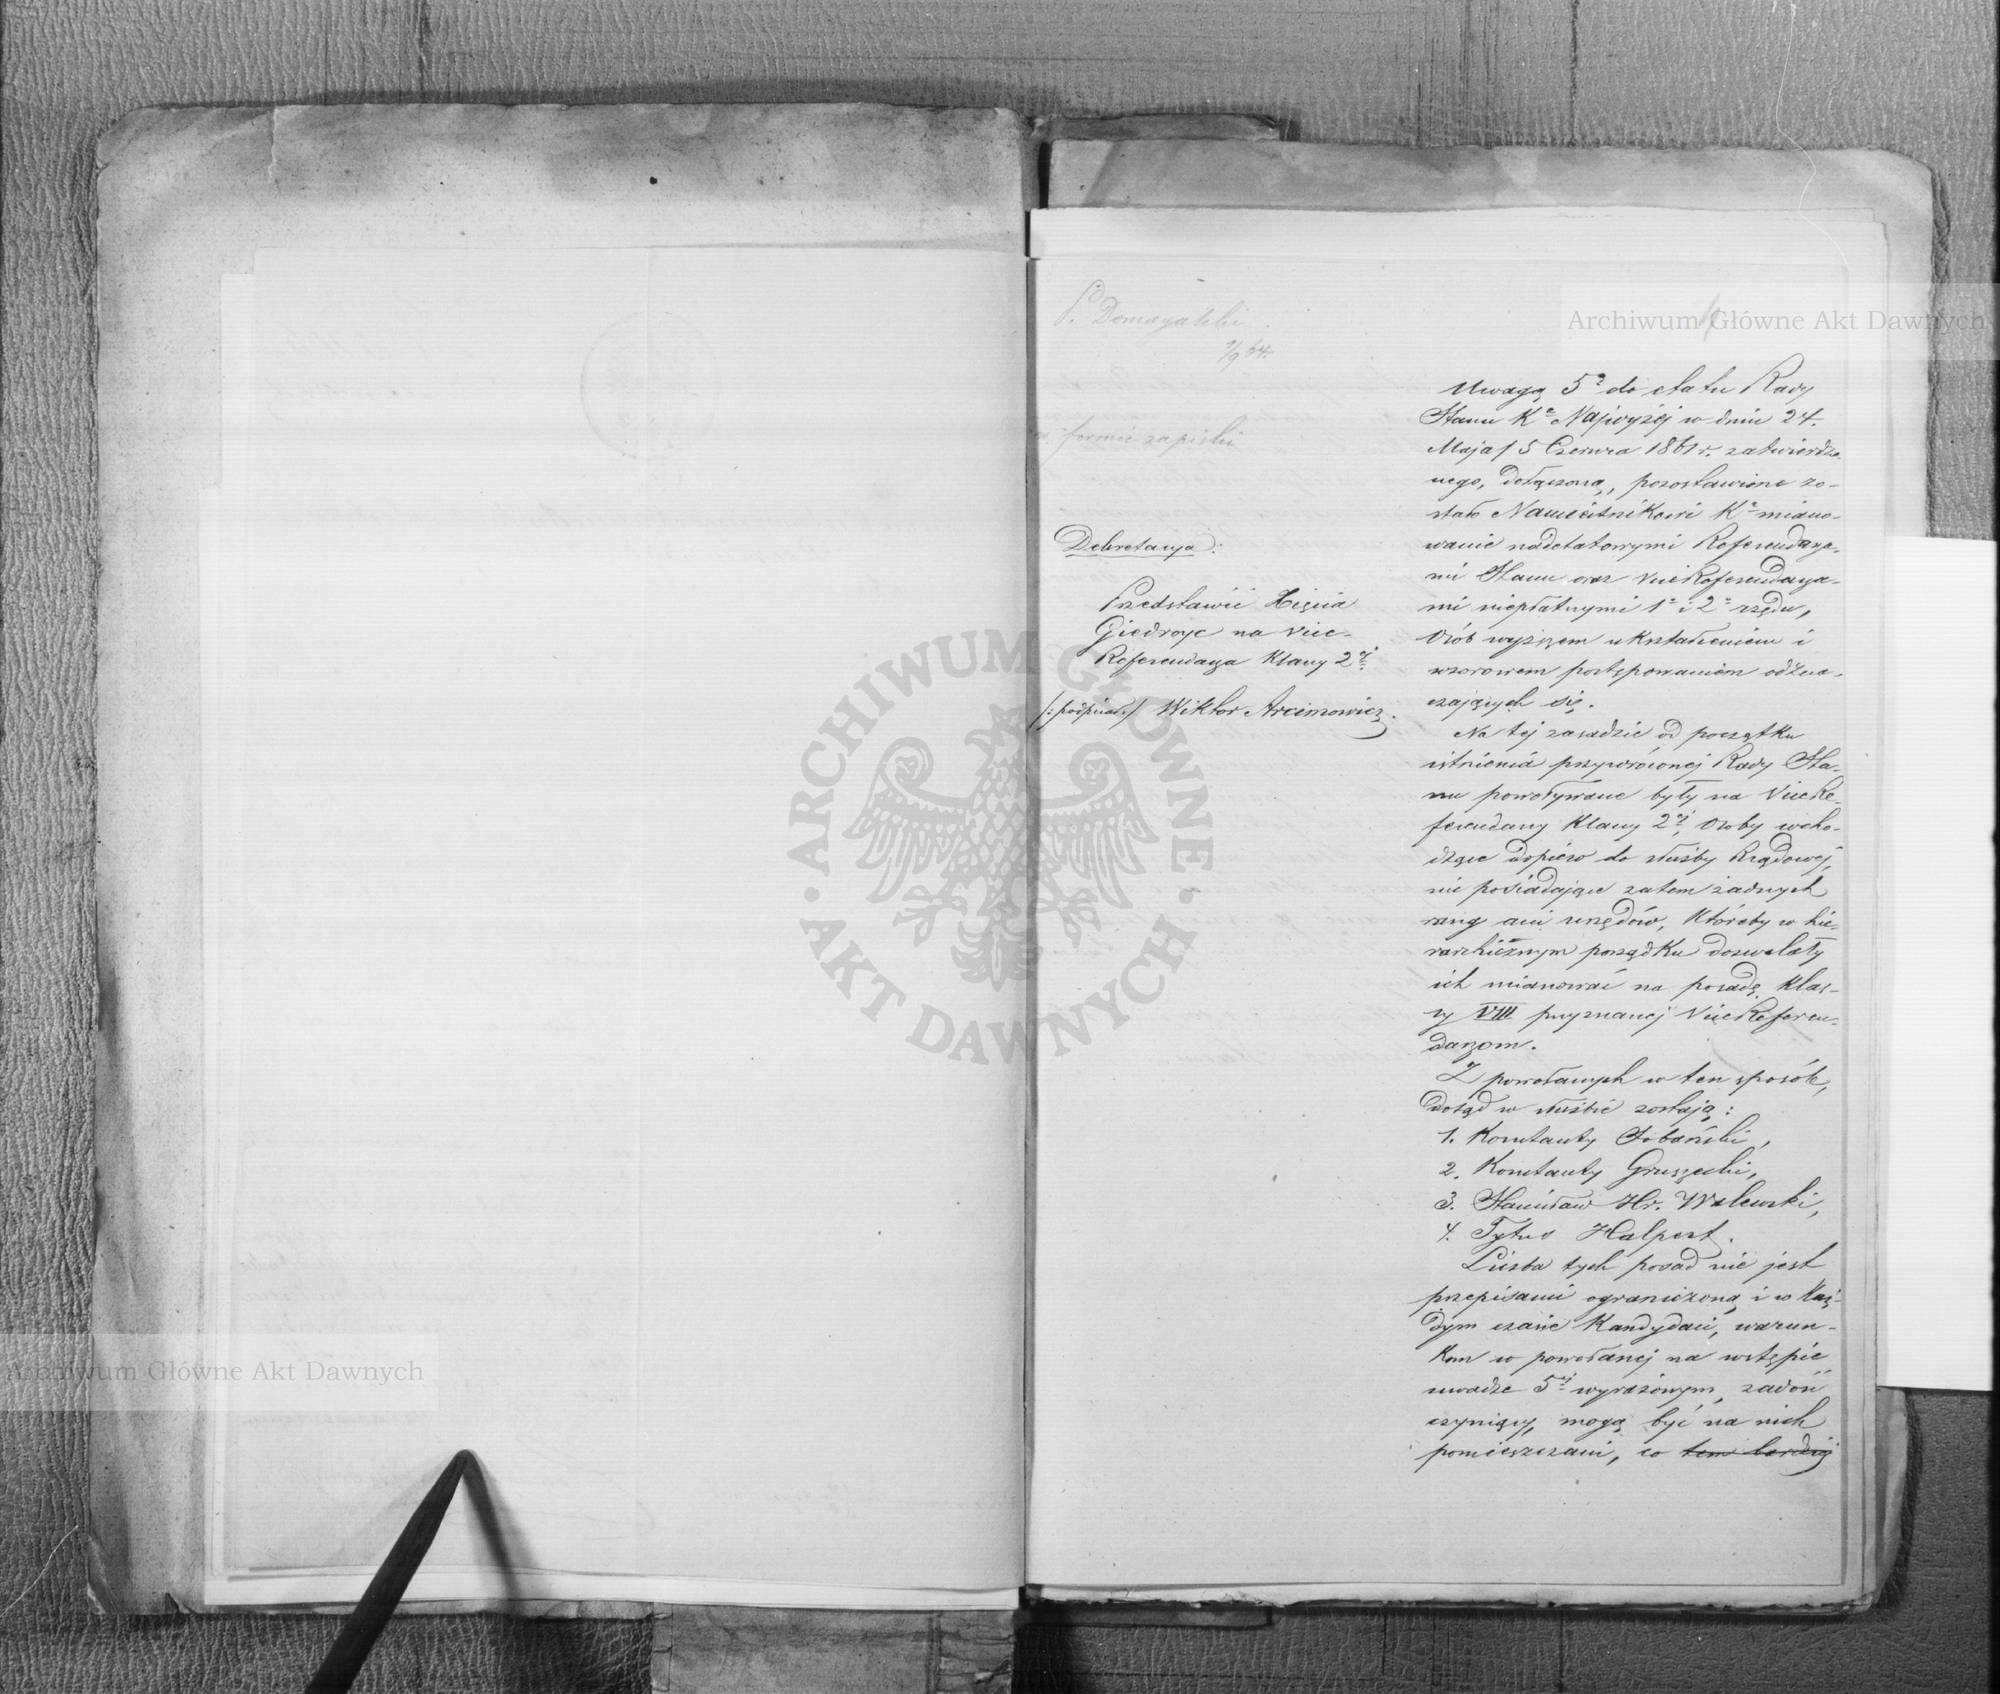 P. Domagalski
1/9 64.
w formie zapiski
Dekretacya:
Przedstawić Xięcia
Giedroyc na Vice-
Referendarza Klassy 2ej
/:podpisał:/ Wiktor Arcimowicz.
Archiwum Główne Akt Dawnych
Uwagą 5ą do etatu Rady
Stanu Ka Najwyżej w dniu 24.
Maja/5 Czerwca 1861 r. zatwierdzo-
nego, dołączoną, pozostawione zo-
stało Namiestnikowi Ka miano-
wanie nadetatowymi Referendarza-
mi Stanu oraz ViceReferendarza-
mi niepłatnymi 1o i 2o rzędu,
Osób wyższem ukształceniem i
wzorowem postępowaniem odzna-
czających się.
Na tej zasadzie od początku
istnienia przywróconej Rady Sta-
nu powoływane były na ViceRe-
ferendarzy Klassy 2ej, Osoby wcho-
dzące dopiero do służby Rządowej,
nie posiadające zatem żadnych
rang ani urzędów, któreby w hie-
rarchicznym porządku dozwalały
ich mianować na posadę klas-
sy VIII przyznanej ViceReferen-
darzom.
Z powołanych w ten sposób,
dotąd w służbie zostają:
1. Konstanty Sobański,
2. Konstanty Gruszecki,
3. Stanisław Hr. Walewski,
4. Tytus Halpert.
Liczba tych posad nie jest
przepisami ograniczoną i w każ-
dym czasie Kandydaci, warun-
kom w powołanej na wstępie
uwadze 5ej wyrażonym, zadość
czyniący, mogą być na nich
pomieszczani, co tem bardziej
ARCHIWUM GŁÓWNE
AKT DAWNYCH
Archiwum Główne Akt Dawnych